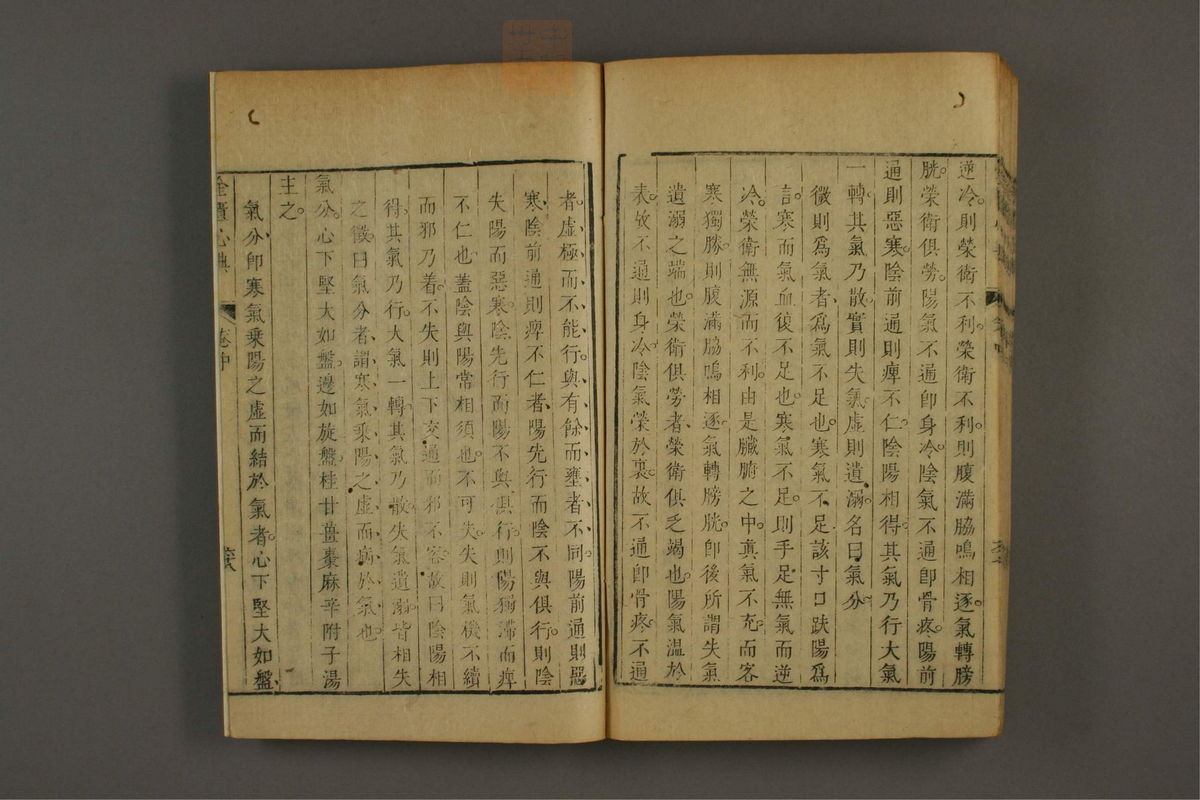 逆冷。則榮衛不利。榮衛不利。則腹滿脇鳴相逐。氣轉膀
胱。榮衛俱勞。陽氣不通卽身冷。陰氣不通卽骨疼。陽前
通則惡寒。陰前通則痺不仁。陰陽相得。其氣乃行。大氣
一轉。其氣乃散。實則失氣。虛則遺溺。名曰氣分。
微則爲氣者。爲氣不足也。寒氣不足。該寸口趺陽爲
言。寒而氣血復不足也。寒氣不足。則手足無氣而逆
冷。榮衛無源而不利。由是臟腑之中。眞氣不充。而客
寒獨勝則腹滿脇鳴相逐。氣轉膀胱。卽後所謂失氣
遺溺之端也。榮衛俱勞者。榮衛俱乏竭也。陽氣溫於
表。故不通則身冷。陰氣榮於裏。故不通卽骨疼。不通
者。虛極而不能行。與有餘而壅者不同。陽前通則惡
寒。陰前通則痺不仁者。陽先行而陰不與俱行。則陰
失陽而惡寒。陰先行而陽不與俱行。則陽獨滯而痺
不仁也。蓋陰與陽常相須也。不可失。失則氣機不續
而邪乃着。不失則上下交通而邪不容。故曰陰陽相
得。其氣乃行。大氣一轉。其氣乃散。失氣遺溺。皆相失
之徵。曰氣分者。謂寒氣乘陽之虛而病於氣也。
氣分。心下堅大如盤。邊如旋盤。桂甘薑棗麻辛附子湯
主之。
氣分卽寒氣乘陽之虛而結於氣者。心下堅大如盤、
金匱心典 卷中